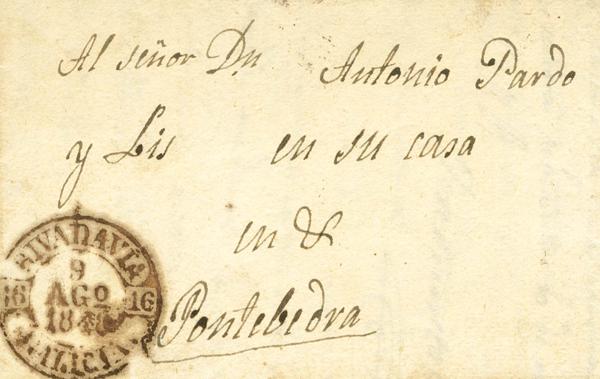 Al señor Dn Antonio Pardo
y Lis en su casa
en &
Pontebedra
RIVADAVIA
9
16 AGO 16
GALICIA